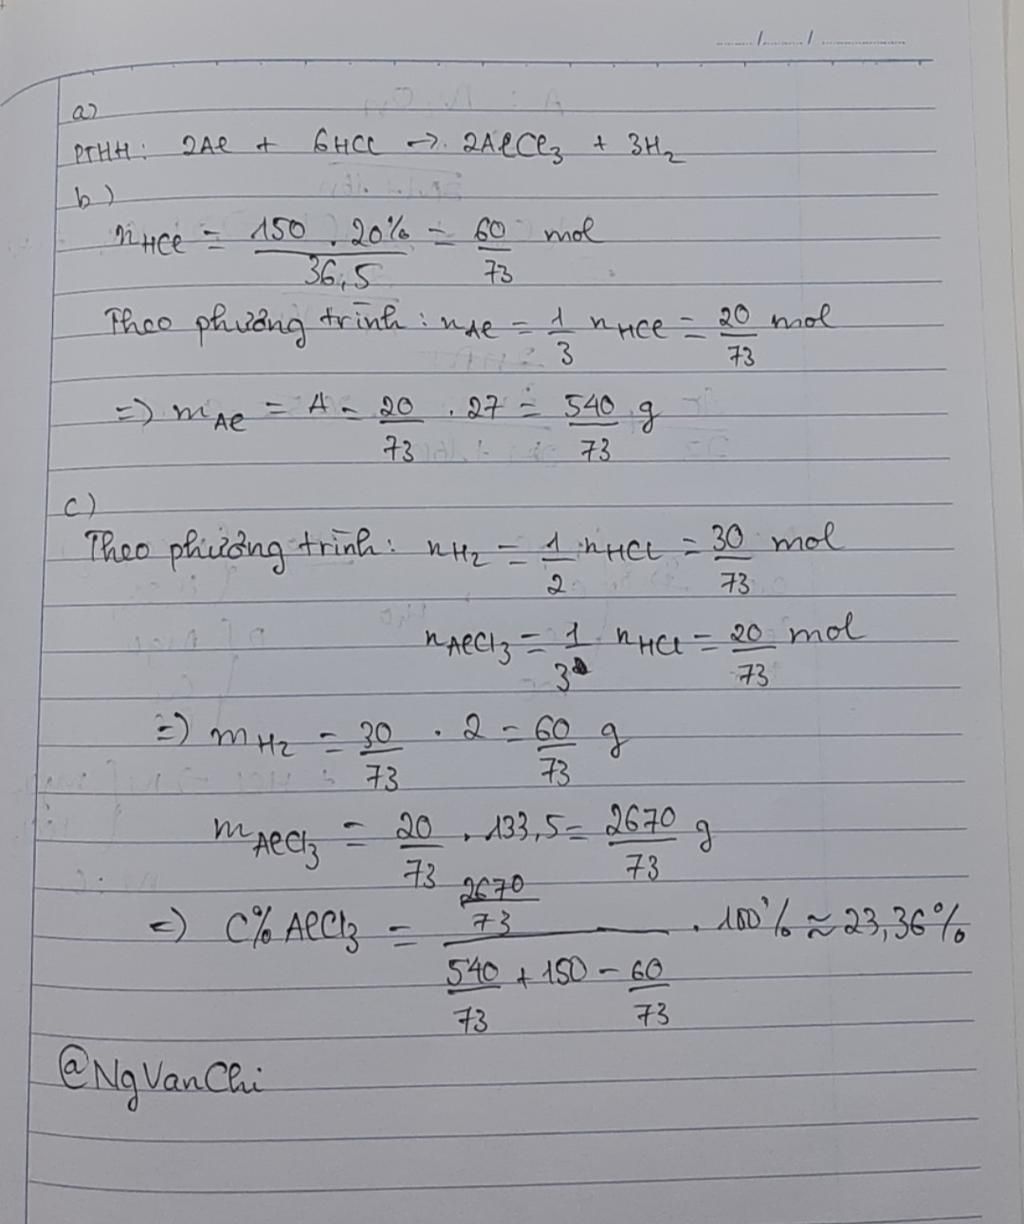 a)
PTHH: 2Al + 6HCl → 2AlCl₃ + 3H₂
b)
nHCl = 150 . 20% / 36,5 = 60/73 mol
Theo phương trình: nAl = 1/3 nHCl = 20/73 mol
=> mAl = A = 20/73 . 27 = 540/73 g
c)
Theo phương trình: nH₂ = 1/2 nHCl = 30/73 mol
nAlCl₃ = 1/3 nHCl = 20/73 mol
=> mH₂ = 30/73 . 2 = 60/73 g
mAlCl₃ = 20/73 . 133,5 = 2670/73 g
=> C% AlCl₃ = (2670/73) / (540/73 + 150 - 60/73) . 100% ≈ 23,36%
@NgVanChi